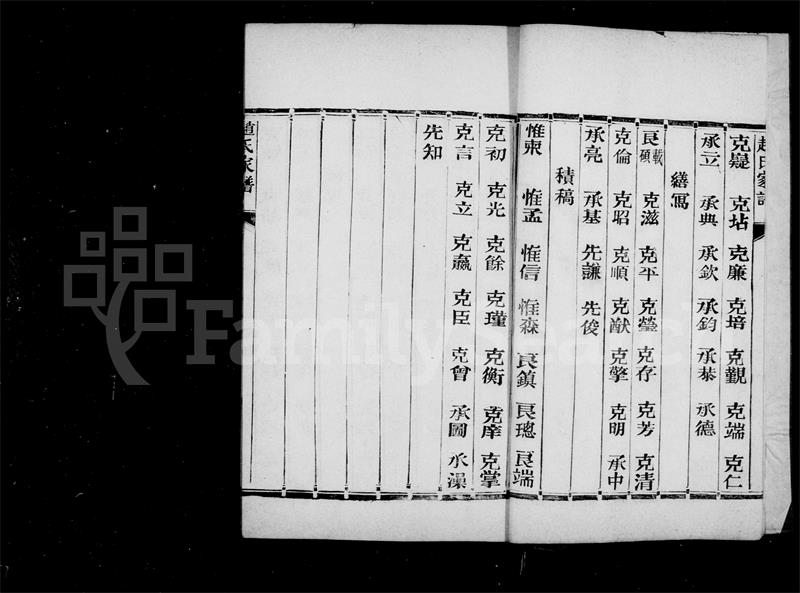 趙氏家譜
克嶷 克坫 克廉 克培 克觀 克端 克仁
承立 承典 承欽 承鈞 承恭 承德
繕寫
良碩 載 克滋 克平 克瑩 克存 克芳 克清
克倫 克昭 克順 克猷 克擎 克明 承中
承亮 承基 先謙 先俊
積稿
惟東 惟孟 惟信 惟森 良鎮 良璁 良端
克初 克光 克餘 克瑾 克衡 克庠 克掌
克言 克立 克嬴 克臣 克曾 承圖 承澡
先知
趙氏家譜
FamilySearch